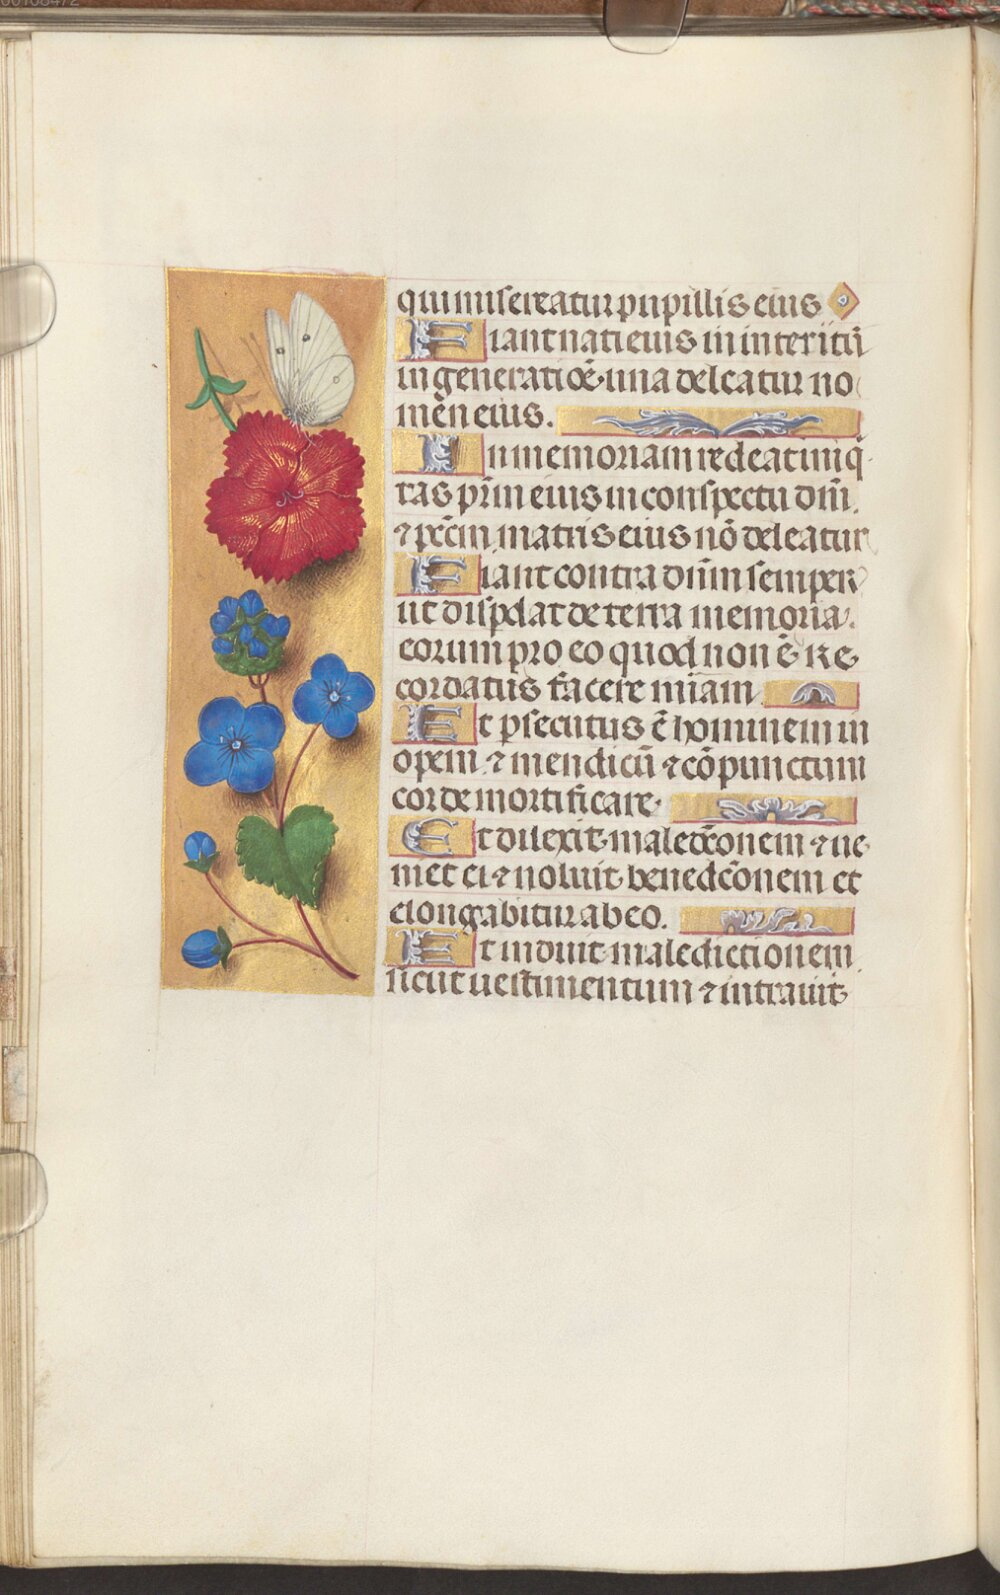 qui misereatur pupillis eius
Fiant nati eius in interitū
in generatiōe una deleatur no
mēn eius.
In memoriam redeat iniq̄
tas pr̄m eius in conspectu dn̄i.
⁊ pc̄cm matris eius nō deleatur
Fiant contra dn̄m semper
ut disp̄dat de terra memoria.
eorum pro eo quod non ē re
cordatus facere mīam
Et psecutus ē hominem in
opem ⁊ mendicū ⁊ cōpunctum
corde mortificare
Et dilexit maledc̄onem ⁊ ue
niet ei ⁊ noluit benedc̄onem et
elongabitur ab eo.
Et induit maledictionem
sicut uestimentum ⁊ intrauit